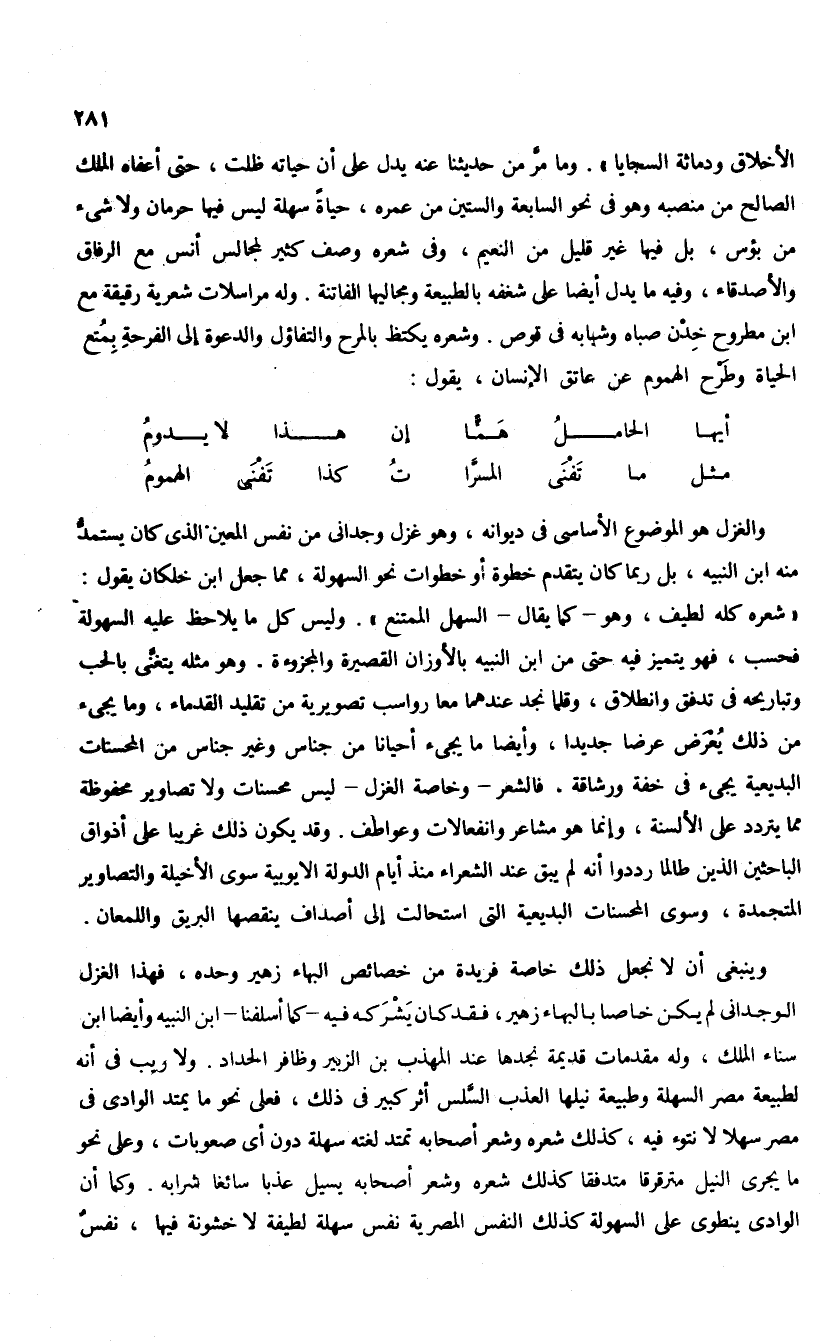 ٢٨١
الأخلاق ودماثة السجايا » . وما مرَّ من حديثنا عنه يدل على أن حياته ظلت ، حتى أعفاه الملك
الصالح من منصبه وهو فى نحو السابعة والستين من عمره ، حياةً سهلة ليس فيها حرمان ولا شىء
من بؤس ، بل فيها غير قليل من النعيم ، وفى شعره وصف كثير لمجالس أنس مع الرفاق
والأصدقاء ، وفيه ما يدل أيضا على شغفه بالطبيعة ومجاليها الفاتنة . وله مراسلات شعرية رقيقة مع
ابن مطروح خِدْن صباه وشبابه فى قوص . وشعره يكتظ بالمرح والتفاؤل والدعوة إلى الفرحةِ بِمُتع
الحياة وطَرْح الهموم عن عاتق الإنسان ، يقول :
أيها الحامـــلُ هَـمًّا إن هـــذا لا يـــدومُ
مثـل ما تَفْنَى المسرَّا تُ كذا تَفْنَى الهمومُ
والغزل هو الموضوع الأساسى فى ديوانه ، وهو غزل وجدانى من نفس المعين الذى كان يستمدُّ
منه ابن النبيه ، بل ربما كان يتقدم خطوة أو خطوات نحو السهولة ، مما جعل ابن خلكان يقول :
« شعره كله لطيف ، وهو – كما يقال – السهل الممتنع » . وليس كل ما يلاحظ عليه السهولة
فحسب ، فهو يتميز فيه حتى من ابن النبيه بالأوزان القصيرة والمجزوءة . وهو مثله يتغنَّى بالحب
وتباريحه فى تدفق وانطلاق ، وقلما نجد عندهما معا رواسب تصويرية من تقليد القدماء ، وما يجىء
من ذلك يُعْرَض عرضا جديدا ، وأيضا ما يجىء أحيانا من جناس وغير جناس من المحسنات
البديعية يجىء فى خفة ورشاقة . فالشعر – وخاصة الغزل – ليس محسنات ولا تصاوير محفوظة
مما يتردد على الألسنة ، وإنما هو مشاعر وانفعالات وعواطف . وقد يكون ذلك غريبا على أذواق
الباحثين الذين طالما رددوا أنه لم يبق عند الشعراء منذ أيام الدولة الايوبية سوى الأخيلة والتصاوير
المتجمدة ، وسوى المحسنات البديعية التى استحالت إلى أصداف ينقصها البريق واللمعان .
وينبغى أن لا نجعل ذلك خاصة فريدة من خصائص البهاء زهير وحده ، فهذا الغزل
الوجدانى لم يكن خاصا بالبهاء زهير ، فقد كان يَشْرَكه فيه – كما أسلفنا – ابن النبيه وأيضا ابن
سناء الملك ، وله مقدمات قديمة نجدها عند المهذب بن الزبير وظافر الحداد . ولا ريب فى أنه
لطبيعة مصر السهلة وطبيعة نيلها العذب السَّلس أثر كبير فى ذلك ، فعلى نحو ما يمتد الوادى فى
مصر سهلا لا نتوء فيه ، كذلك شعره وشعر أصحابه تمتد لغته سهلة دون أى صعوبات ، وعلى نحو
ما يجرى النيل مترقرقا متدفقا كذلك شعره وشعر أصحابه يسيل عذبا سائغا شرابه . وكما أن
الوادى ينطوى على السهولة كذلك النفس المصرية نفس سهلة لطيفة لا خشونة فيها ، نفسٌ